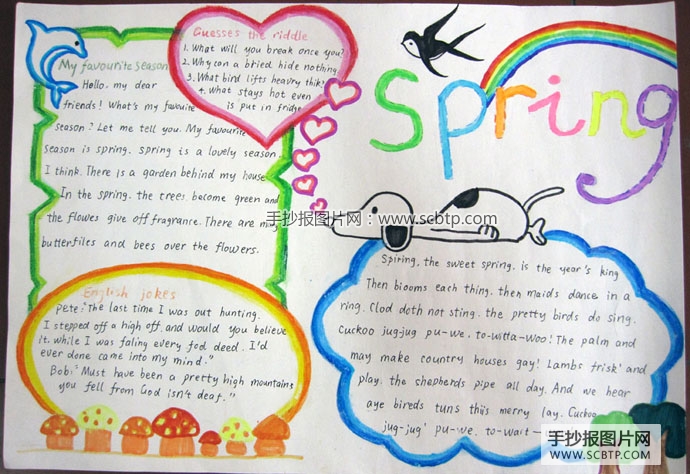 Spring
My favourite season
Hello, my dear
friends! What's my favouite
season? Let me tell you. My favourite
season is spring. spring is a lovely season.
I think. There is a garden behind my house
In the spring. the trees become green and
the flowes give off fragrance. There are
butterfiles and bees over the flowers.
Guesses the riddle
1. What will you break once you?
2. Why can a bried hide nothing
3. What bird lifts heavry thik?
4. what stays hot even
is put in fridge
English jokes
Pete: "The last time I was out hunting.
I stepped off a high off. and would you believe
it. while I was faling every fed deed. I'd
ever done came into my mind."
Bob: "Must have been a pretty high mountains
you fell from God isn't deaf."
Spiring, the sweet spring. is the year's king
Then biooms each thing. then maids dance in a
ring. Clod doth not sting. the pretty birds do sing.
Cuckoo jug-jug pu-we. to-witta-woo! The palm and
may make country houses gay! Lambs frisk' and
play. the shepherds pipe all day. And we hear
aye bireds tuns this merry lay. Cuckoo
jug-jug' pu-we. to-wait
手抄报图片网:www.scbtp.com
手抄报图片网
SCBTP.COM